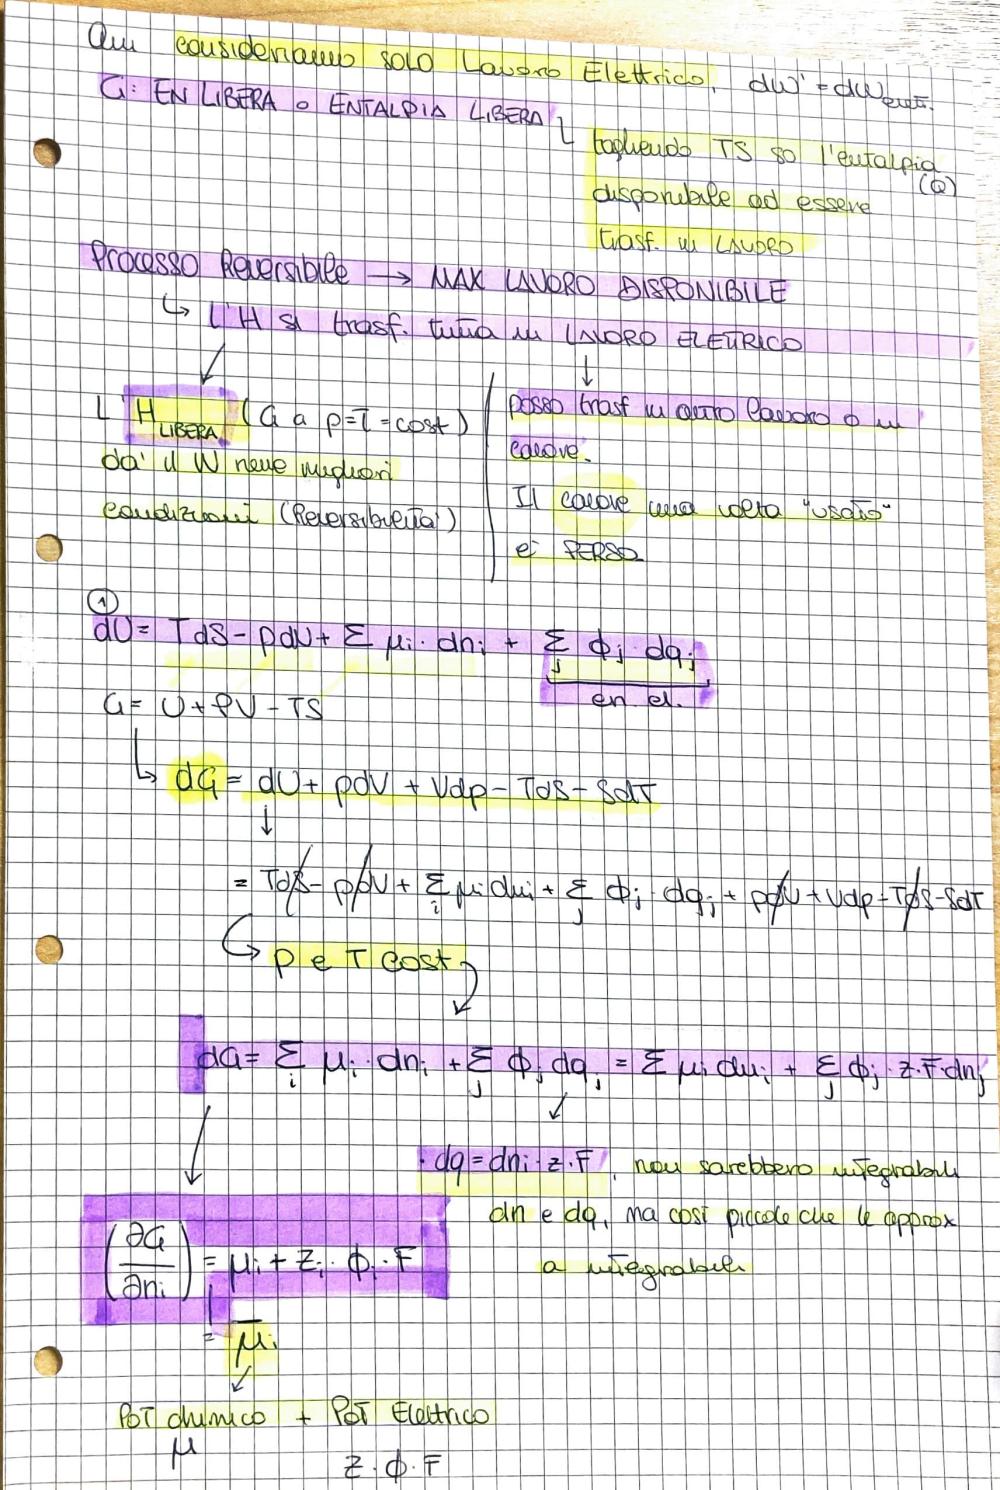 Qui consideriamo solo Lavoro Elettrico, dW' = dWelett.
G: EN LIBERA o ENTALPIA LIBERA
togliendo TS so l'entalpia
(Q)
disponibile ad essere
trasf. in LAVORO
Processo Reversibile → MAX LAVORO DISPONIBILE
↳ L'H si trasf. tutta in LAVORO ELETTRICO
L'H LIBERA (G a p=T=cost)
da' il W nelle migliori
condizioni (Reversibilità)
posso trasf in altro lavoro o in
calore.
Il calore una volta "usato"
è PERSO
①
dU = TdS - pdV + Σ μi · dni + Σj ϕj dqj
en el.
G = U + PV - TS
↳ dG = dU + pdV + Vdp - TdS - SdT
↓
= TdS - pdV + Σi μi dni + Σj ϕj · dqj + pdV + Vdp - TdS - SdT
↳ p e T cost
dG = Σi μi · dni + Σj ϕj dqj = Σ μi dni + Σj ϕj · z·F·dnj
· dq = dni · z · F , non sarebbero integrabili
dn e dq, ma così piccole che le approx
a integrabili
(∂G/∂ni) = μi + zi · ϕi · F
= μ̅i
POT chimico + POT Elettrico
μ z · ϕ · F